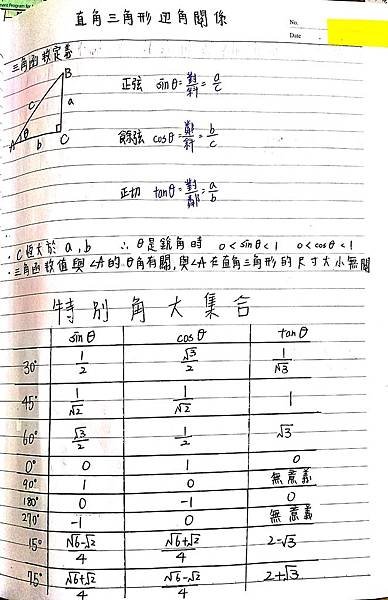 直角三角形邊角關係
No.
Date
三角函數定義
B
c
a
A θ
b
C
正弦 sinθ=對/斜=a/c
餘弦 cosθ=鄰/斜=b/c
正切 tanθ=對/鄰=a/b
·C恆大於a,b ∴θ是銳角時 0<sinθ<1 0<cosθ<1
·三角函數值與∠A的θ角有關,與∠A在直角三角形的尺寸大小無關
特別角大集合
sinθ cosθ tanθ
30° 1/2 √3/2 1/√3
45° 1/√2 1/√2 1
60° √3/2 1/2 √3
0° 0 1 0
90° 1 0 無意義
180° 0 -1 0
270° -1 0 無意義
15° √6-√2/4 √6+√2/4 2-√3
75° √6+√2/4 √6-√2/4 2+√3